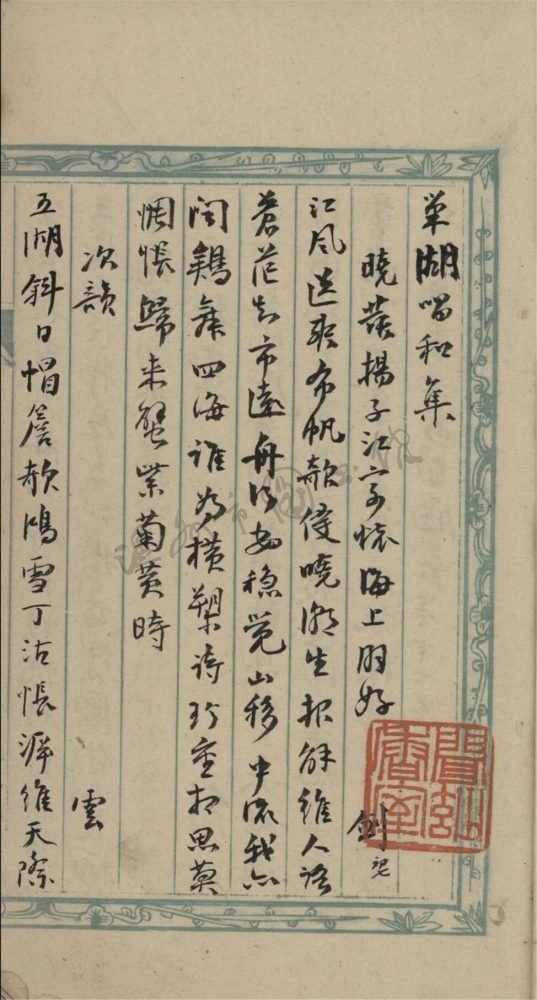 巢湖唱和集
曉發揚子江寄懷海上朋好
劍
江風送爽布帆欹侵曉潮生報解維人語
蒼茫知市遠舟行安穩覺山移中流我亦
聞鷄舞四海誰為橫槊詩珍重相思莫
惆悵歸来蟹紫菊黃時
次韻
雲
五湖斜日帽簷欹鴻雪丁沽悵滯維天際